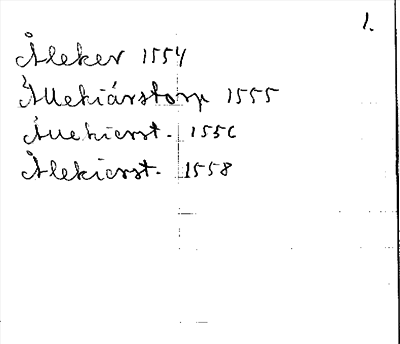 1.
Åleker 1554
Ållekiärstorp 1555
Ållekierst. 1556
Ålekierst. 1558